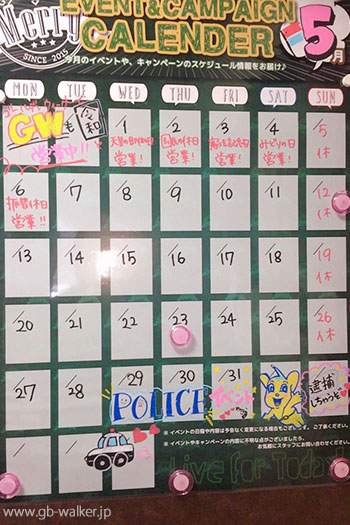 Merry
SINCE 2015
EVENT&CAMPAIGN
CALENDER
5月
今月のイベントや、キャンペーンのスケジュール情報をお届け♪
MON TUE WED THU FRI SAT SUN
GWも
営業中!!
令和
1 2 3 4 5
営業! 営業! 営業! みどりの日 営業! 休
6 7 8 9 10 11 12
振替休日 営業!! 休
13 14 15 16 17 18 19
休
20 21 22 23 24 25 26
休
27 28 29 30 31
POLICE イベント 逮捕しちゃうぞ
※イベントの日程や内容は予告なく変更になる場合もございます。ご了承ください。
※イベントやキャンペーンの内容に不明な点がございましたら、
お気軽にスタッフにお問い合わせください。
Live for Today!
www.gb-walker.jp